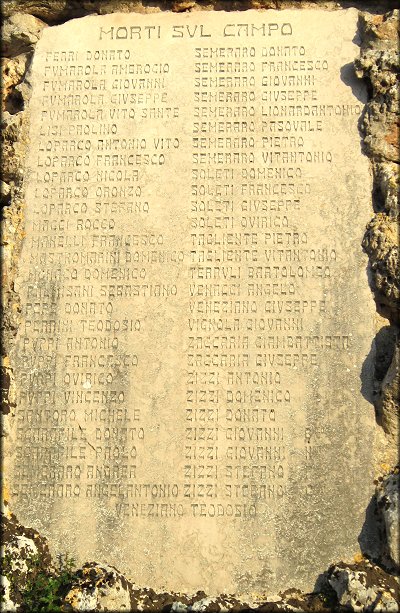 MORTI SVL CAMPO
FERRI DONATO
FVMAROLA AMBROGIO
FVMAROLA GIOVANNI
FVMAROLA GIVSEPPE
FVMAROLA VITO SANTE
LISI PAOLINO
LOPARCO ANTONIO VITO
LOPARCO FRANCESCO
LOPARCO NICOLA
LOPARCO ORONZO
LOPARCO STEFANO
MAGGI ROCCO
MANELLI FRANCESCO
MASTROMARINI DOMENICO
MONACO DOMENICO
SEBASTIANO
PEPE DONATO
PERRINI TEODOSIO
PVPPI ANTONIO
PVPPI FRANCESCO
PVPPI QVIRICO
VINCENZO
SANTORO MICHELE
SCARAFILE DONATO
SCARAFILE PAOLO
SEMERARO ANDREA
SEMERARO ANGELANTONIO
SEMERARO DONATO
SEMERARO FRANCESCO
SEMERARO GIOVANNI
SEMERARO GIVSEPPE
SEMERARO LIONARDANTONIO
SEMERARO PASQVALE
SEMERARO PIETRO
SEMERARO VITANTONIO
SOLETI DOMENICO
SOLETI FRANCESCO
SOLETI GIVSEPPE
SOLETI QVIRICO
TAGLIENTE PIETRO
TAGLIENTE VITANTONIO
TERRVLI BARTOLOMEO
VENACCI ANGELO
VENEZIANO GIVSEPPE
VIGNOLA GIOVANNI
ZACCARIA GIAMBATTISTA
ZACCARIA GIVSEPPE
ZIZZI ANTONIO
ZIZZI DOMENICO
ZIZZI DONATO
ZIZZI GIOVANNI
ZIZZI GIOVANNI
ZIZZI STEFANO
ZIZZI STEFANO
VENEZIANO TEODOSIO